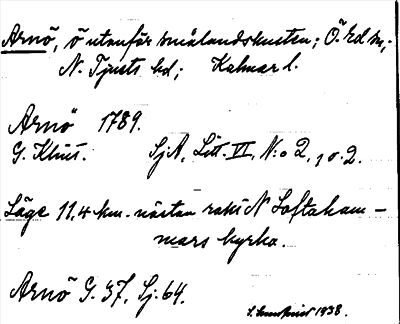 Arnö, ö utanför smålandskusten; Ö. Ed sn,;
N. Tjusts hd; Kalmar l.
Arnö 1789.
G. Klint. SjA, Litt. VI, N:o 2, 1 o. 2.
Läge 11,4 km. nästan rakt N Loftaham-
mars kyrka.
Arnö G. 37, Sj. 64.
1938.